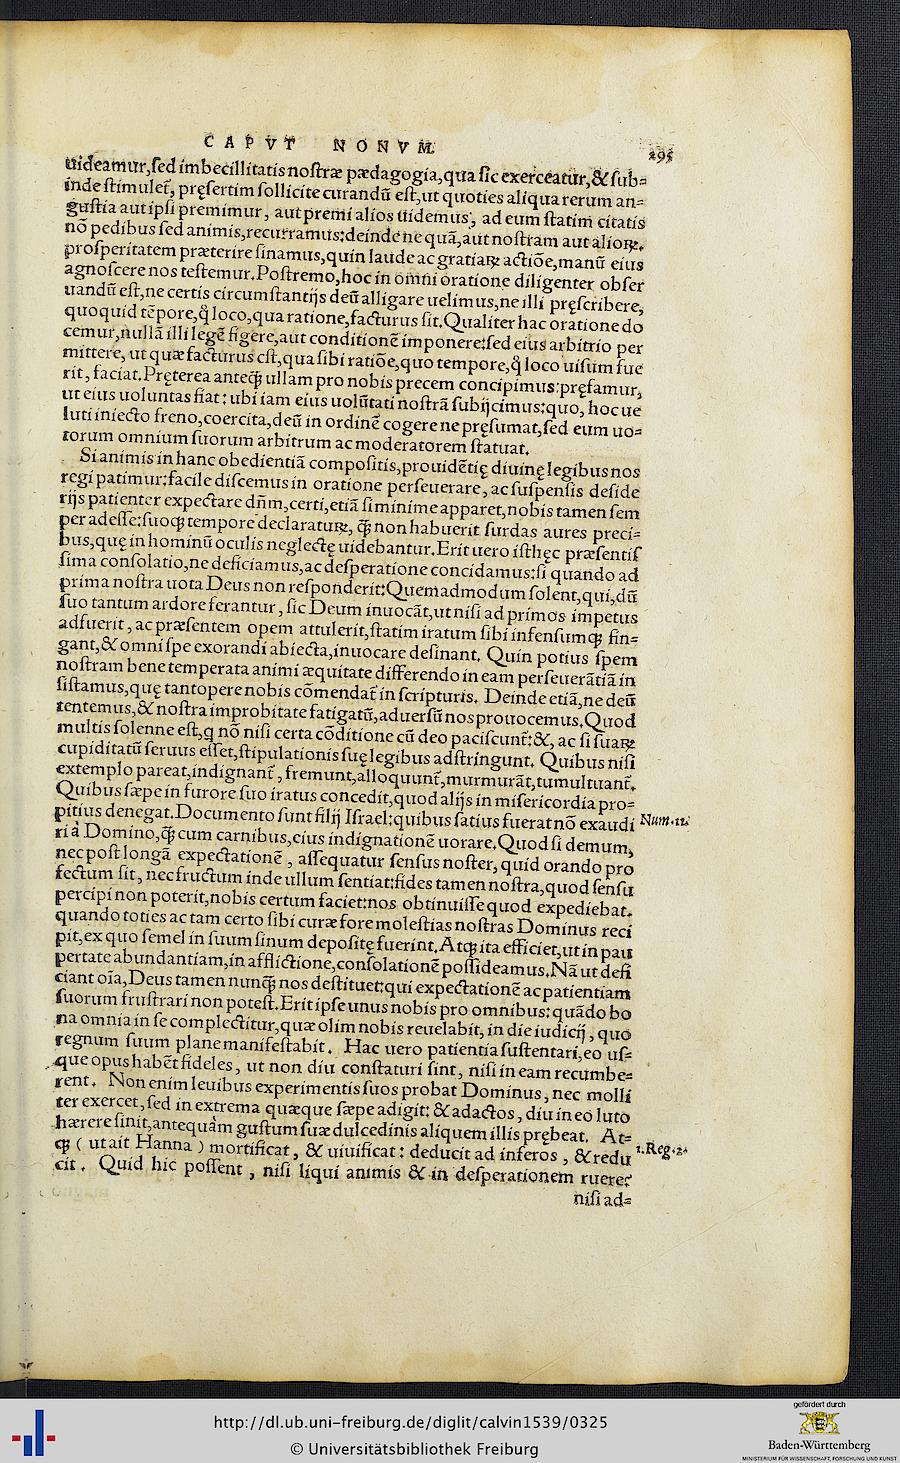 CAPVT NONVM. 295
uideamur, sed imbecillitatis nostræ pædagogia, qua sic exerceatur, & sub=
inde stimulet᷑, pręsertim sollicite curandũ est, ut quoties aliqua rerum an=
gustia aut ipsi premimur, aut premi alios uidemus, ad eum statim citatis
nõ pedibus sed animis, recurramus: deinde ne quã, aut nostram aut alioꝝ,
prosperitatem præterire sinamus, quin laude ac gratiaꝝ actiõe, manũ eius
agnoscere nos testemur. Postremo, hoc in omni oratione diligenter obser
uandũ est, ne certis circumstantijs deũ alligare uelimus, ne illi pręscribere,
quoquid tẽpore, q̊ loco, qua ratione, facturus sit. Qualiter hac oratione do
cemur, nullã illi legẽ figere, aut conditionẽ imponere: sed eius arbitrio per
mittere, ut quæ facturus est, qua sibi ratiõe, quo tempore, q̊ loco uisum fue
rit, faciat. Pręterea anteq̃ ullam pro nobis precem concipimus: pręfamur,
ut eius uoluntas fiat: ubi iam eius uolũtati nostrã subijcimus: quo, hoc ue
luti iniecto freno, coercita, deũ in ordinẽ cogere ne pręsumat, sed eum uo=
torum omnium suorum arbitrum ac moderatorem statuat.
Si animis in hanc obedientiã compositis, prouidẽtię diuinę legibus nos
regi patimur: facile discemus in oratione perseuerare, ac suspensis deside
rijs patienter expectare dñm, certi, etiã si minime apparet, nobis tamen sem
per adesse: suoq; tempore declaraturũ, q̃ non habuerit surdas aures preci=
bus, quę in hominũ oculis neglectę uidebantur. Erit uero isthęc præsentis
sima consolatio, ne deficiamus, ac desperatione concidamus: si quando ad
prima nostra uota Deus non responderit: Quemadmodum solent, qui, dũ
suo tantum ardore ferantur, sic Deum inuocãt, ut nisi ad primos impetus
adfuerit, ac præsentem opem attulerit, statim iratum sibi infensumq; fin=
gant, & omni spe exorandi abiecta, inuocare desinant. Quin potius spem
nostram bene temperata animi æquitate differendo in eam perseuerãtiã in
sistamus, quę tantopere nobis cõmendat᷑ in scripturis. Deinde etiã, ne deũ
tentemus, & nostra improbitate fatigatũ, aduersũ nos prouocemus. Quod
multis solenne est, q nõ nisi certa cõditione cũ deo paciscunt᷑: &, ac si suaꝝ
cupiditatũ seruus esset, stipulationis suę legibus adstringunt. Quibus nisi
extemplo pareat, indignant᷑, fremunt, alloquunt᷑, murmurãt, tumultuant᷑.
Quibus sæpe in furore suo iratus concedit, quod alijs in misericordia pro=
pitius denegat. Documento sunt filij Israel: quibus satius fuerat nõ exaudi Num. 11.
ri à Domino, q̃ cum carnibus, eius indignationẽ uorare. Quod si demum,
nec post longã expectationẽ, assequatur sensus noster, quid orando pro
fectum sit, nec fructum inde ullum sentiat: fides tamen nostra, quod sensu
percipi non poterit, nobis certum faciet: nos obtinuisse quod expediebat.
quando toties ac tam certo sibi curæ fore molestias nostras Dominus reci
pit, ex quo semel in suum sinum depositę fuerint. Atq; ita efficiet, ut in pau
pertate abundantiam, in afflictione, consolationẽ possideamus. Nã ut defi
ciant oĩa, Deus tamen nunq̃ nos destituet: qui expectationẽ ac patientiam
suorum frustrari non potest. Erit ipse unus nobis pro omnibus: quãdo bo
na omnia in se complectitur, quæ olim nobis reuelabit, in die iudicij, quo
regnum suum plane manifestabit. Hac uero patientia sustentari, eo us=
que opus habẽt fideles, ut non diu constaturi sint, nisi in eam recumbe=
rent. Non enim leuibus experimentis suos probat Dominus, nec molli
ter exercet, sed in extrema quæque sæpe adigit: & adactos, diu in eo luto
hærere sinit, antequàm gustum suæ dulcedinis aliquem illis prębeat. At=
q; ( ut ait Hanna ) mortificat, & uiuificat: deducit ad inferos, & redu 1. Reg. 2.
cit. Quid hic possent, nisi liqui animis & in desperationem ruere?
nisi ad=
http://dl.ub.uni-freiburg.de/diglit/calvin1539/0325
© Universitätsbibliothek Freiburg
gefördert durch
Baden-Württemberg
MINISTERIUM FÜR WISSENSCHAFT, FORSCHUNG UND KUNST